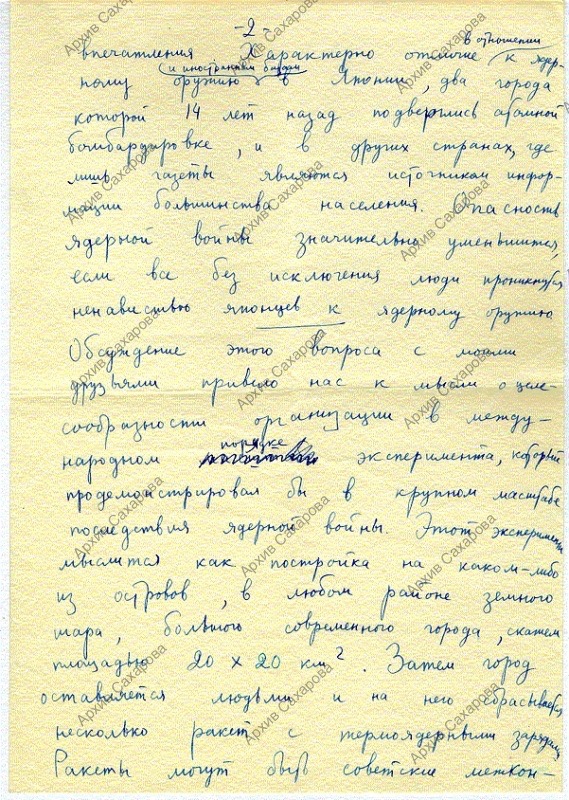 -2-
впечатления Характерно отличие в отношении к ядер-
ному оружию и иностранным базам в Японии, два города
которой 14 лет назад подверглись атомной
бомбардировке, и в других странах, где
лишь газеты являются источником инфор-
мации большинства населения. Опасность
ядерной войны значительно уменьшится,
если все без исключения люди проникнутся
ненавистью японцев к ядерному оружию
Обсуждение этого вопроса с моими
друзьями привело нас к мысли о целе-
сообразности организации в между-
народном порядке эксперимента, который
продемонстрировал бы в крупном масштабе
последствия ядерной войны. Этот эксперимент
мыслится как постройка на каком-либо
из островов, в любом районе земного
шара, большого современного города, скажем
площадью 20 x 20 км². Затем город
оставляется людьми и на него сбрасывается
несколько ракет с термоядерными зарядами
Ракеты могут быть советские межкон-
Архив Сахарова